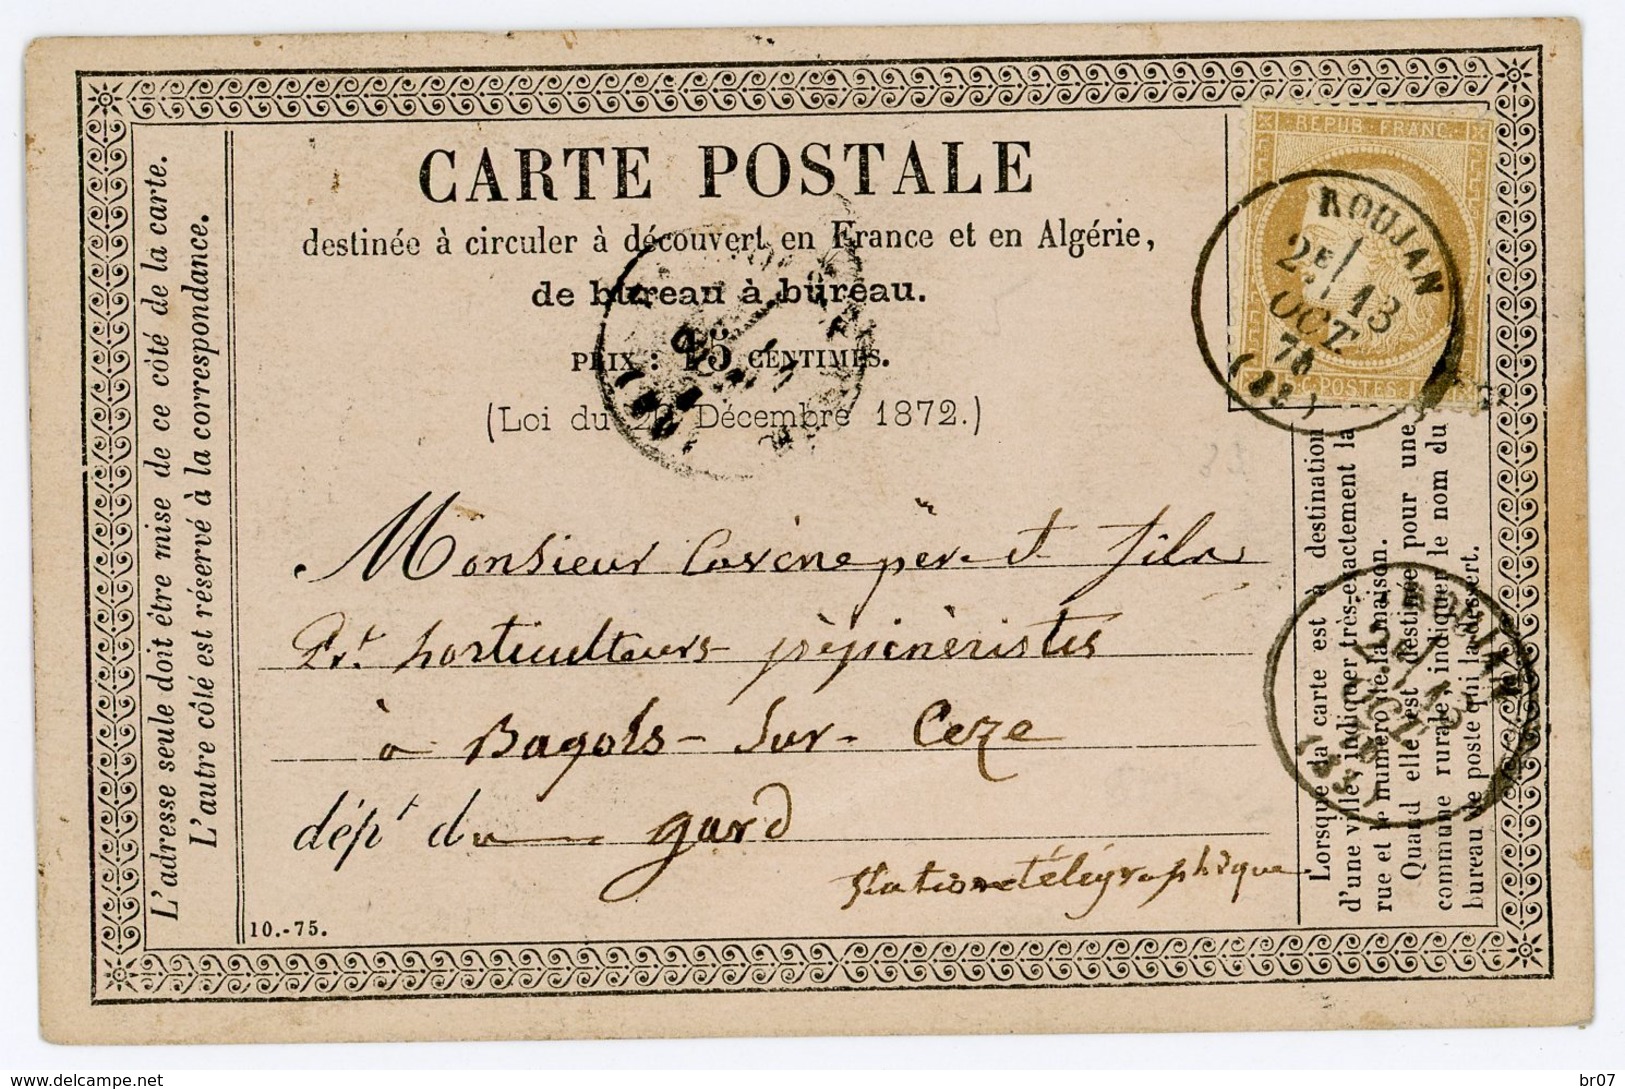 CARTE POSTALE
destinée à circuler à découvert en France et en Algérie,
de bureau à bureau.
PRIX : 15 CENTIMES.
(Loi du 20 Décembre 1872.)
REPUB. FRANC.
C. POSTES 1
ROUJAN
2E
13
OCT.
76
L'adresse seule doit être mise de ce côté de la carte.
L'autre côté est réservé à la correspondance.
Monsieur père et fils
Pr. horticulteurs pèpinèristes
à Bagols-Sur-Ceze
dépt du gard
Station télégraphique
10.-75.
Lorsque la carte est à destination
d'une ville, indiquer très-exactement la
rue et le numéro de la maison.
Quand elle est destinée pour une
commune rurale, indiquer le nom du
bureau de poste qui la dessert.
ROUJAN
2E
13
OCT.
delcampe.net
br07